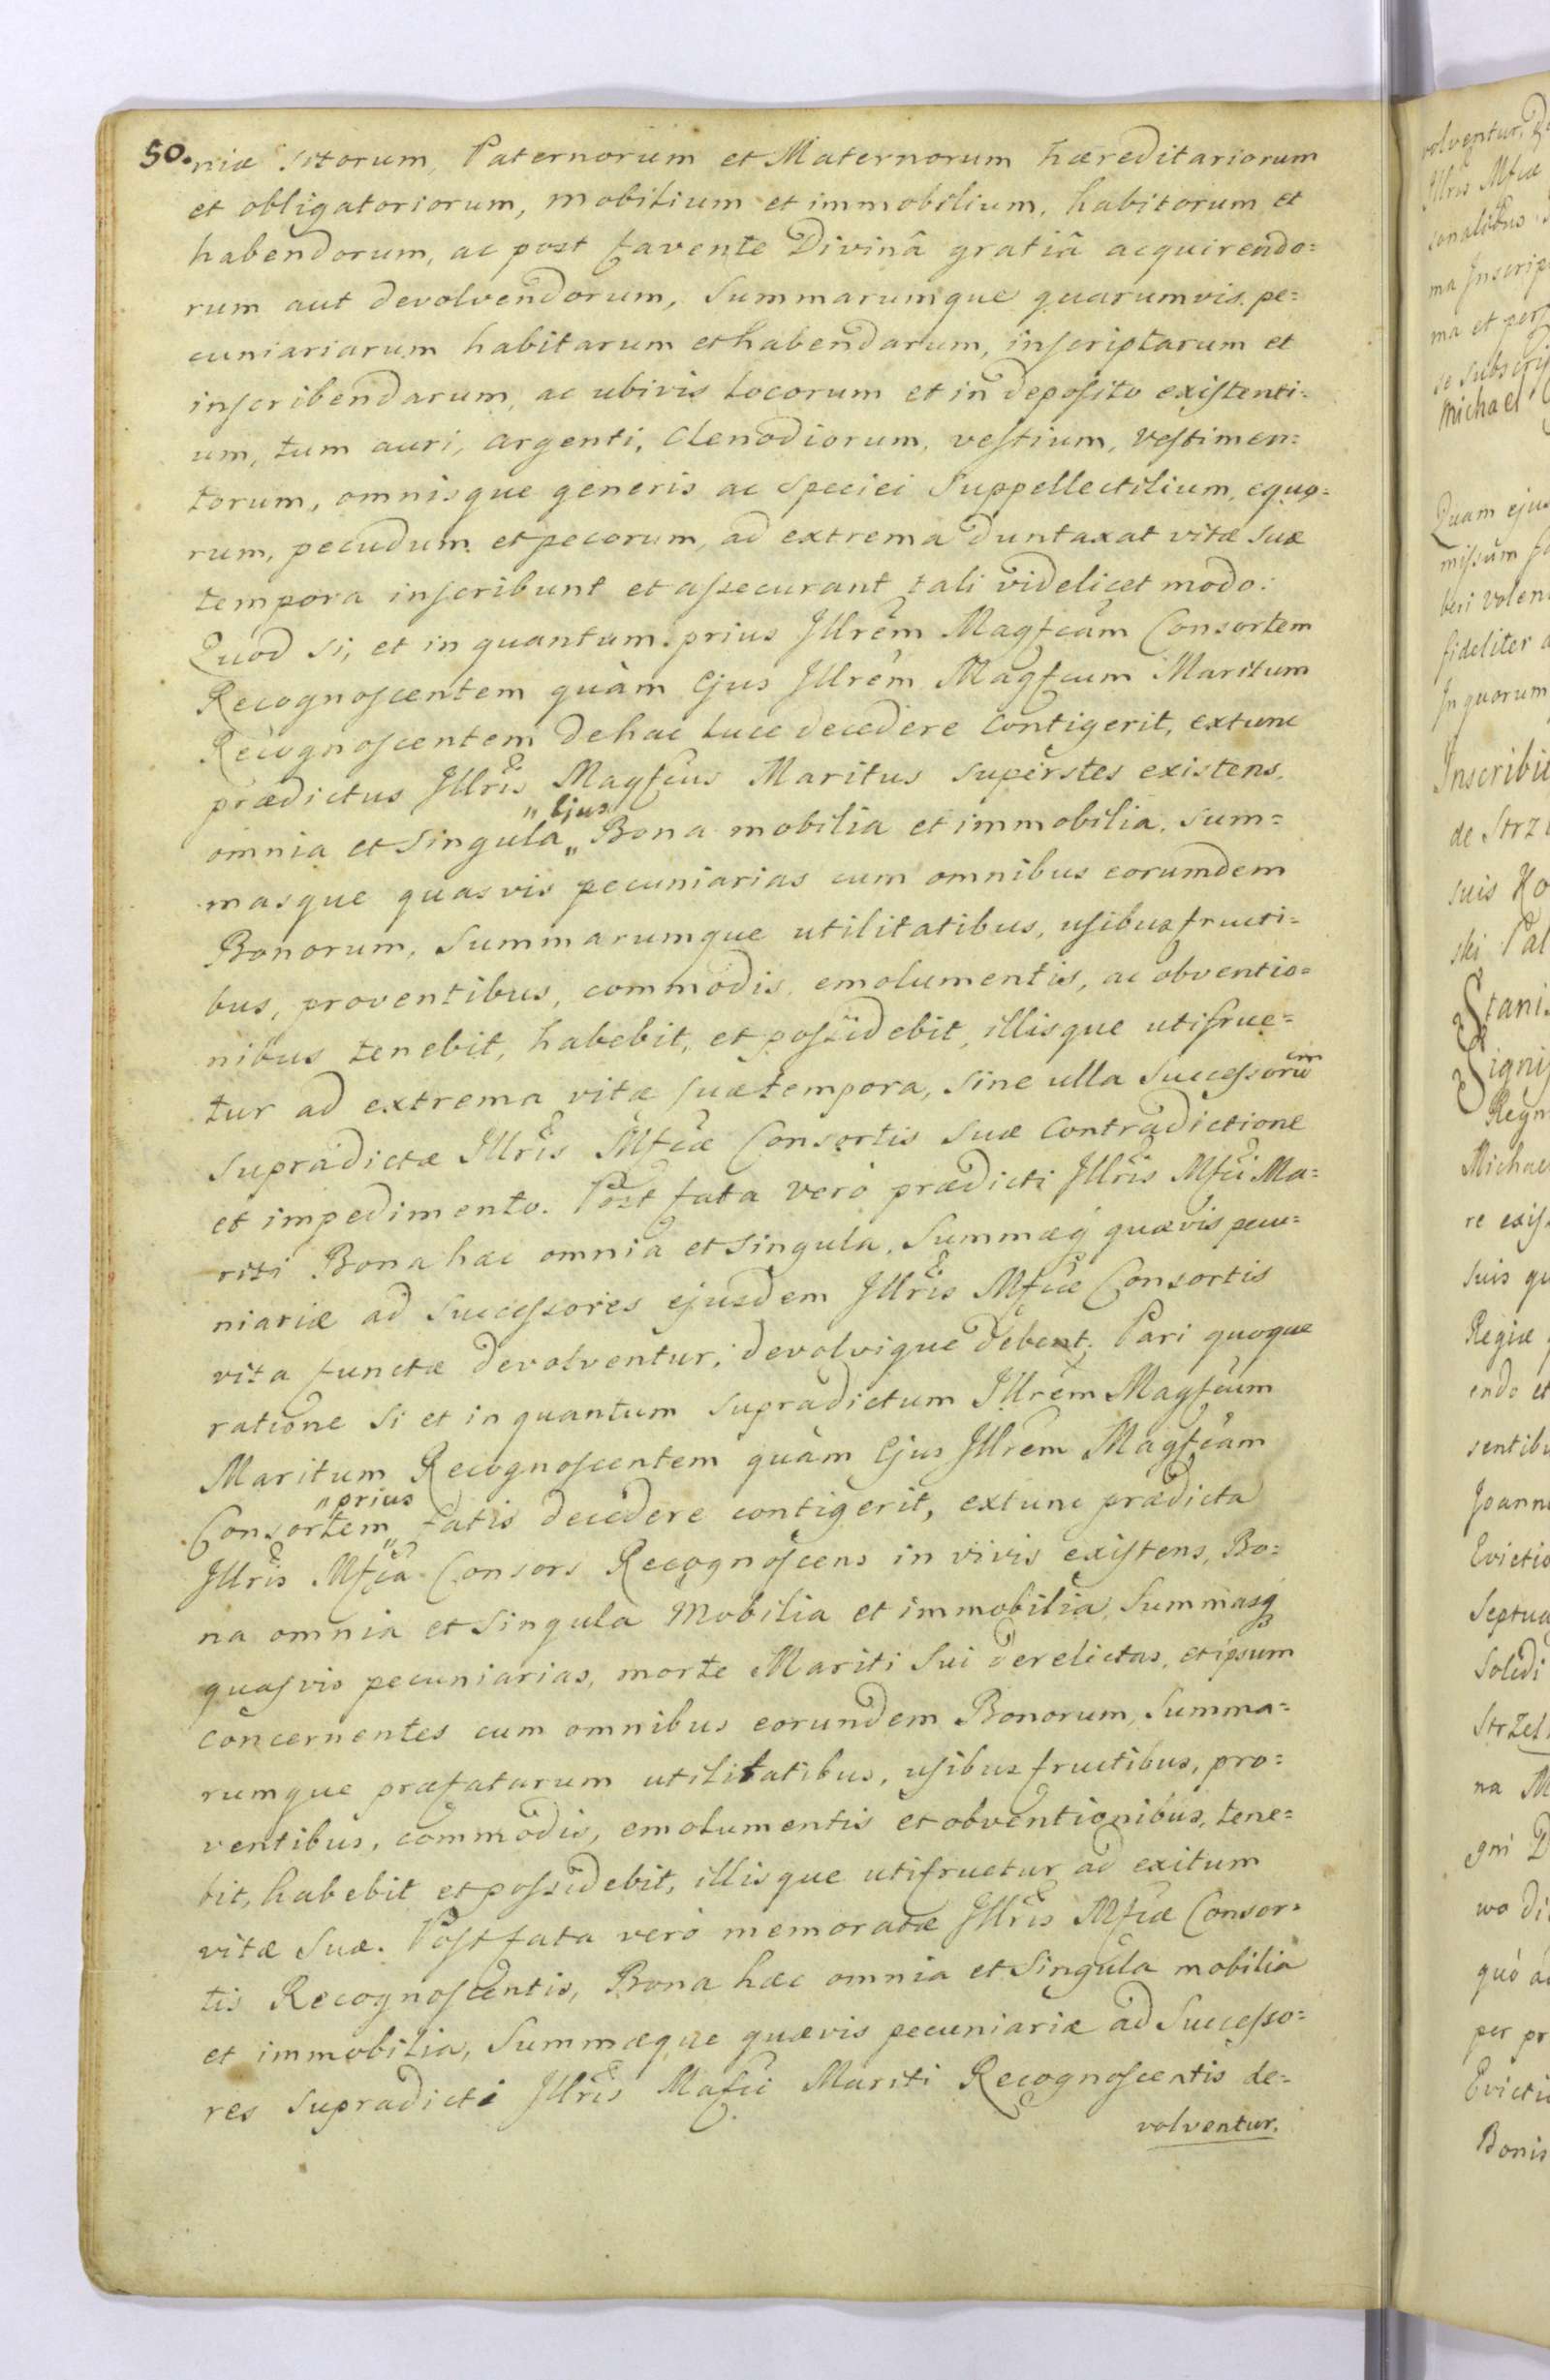 50. niæ sitorum, Paternorum et Maternorum hæreditariorum
et obligatoriorum, mobilium et immobilium, habitorum et
habendorum, ac post favente Divinâ gratiâ acquirendo=
rum aut devolvendorum, Summarumque quarumvis pe=
cuniariarum habitarum et habendarum, inscriptarum et
inscribendarum, ac ubivis locorum et in deposito existenti=
um, tum auri, argenti, Clenodiorum, vestium, vestimen=
torum, omnisque generis ac speciei Suppellectilium, equo=
rum, pecudum et pecorum, ad extrema duntaxat vitæ suæ
tempora inscribunt et assecurant tali videlicet modo:
Quod si, et in quantum prius Illrem Magfcam Consortem
Recognoscentem quàm Ejus Illrem Magfcum Maritum
Recognoscentem de hac luce decedere contigerit, extunc
prædictus Illris Magfcus Maritus superstes existens,
omnia et singula „ Ejus „ Bona mobilia et immobilia, sum=
masque quasvis pecuniarias cum omnibus eorumdem
Bonorum, Summarumque utilitatibus, usibus fructi=
bus, proventibus, commodis, emolumentis, ac obventio=
nibus tenebit, habebit, et possidebit, illisque utifrue=
tur ad extrema vitæ suæ tempora, sine ulla Successorum
supradictæ Illris Mfcæ Consortis suæ contradictione
et impedimento. Post fata verò prædicti Illris Mfci Ma=
riti Bona hæc omnia et singula, Summæq quævis pecu=
niariæ ad successores ejusdem Illris Mfcæ Consortis
vita functæ devolventur, devolvique debent. Pari quoque
ratione si et in quantum supradictum Illrem Magfcum
Maritum Recognoscentem quàm Ejus Illrem Magfcam
Consortem „ prius „ fatis decedere contigerit, extunc prædicta
Illris Mfca Consors Recognoscens in vivis existens, Bo=
na omnia et singula Mobilia et immobilia, Summasq
quasvis pecuniarias, morte Mariti sui derelictas, et ipsum
concernentes cum omnibus eorundem Bonorum, Summa=
rumque præfatarum utilitatibus, usibus fructibus, pro=
ventibus, commodis, emolumentis et obventionibus, tene=
bit, habebit et possidebit, illisque utifruetur ad exitum
vitæ suæ. Post fata verò memoratæ Illris Mfcæ Consor=
tis Recognoscentis, Bona hæc omnia et singula mobilia
et immobilia, Summæque quævis pecuniariæ ad Successo=
res supradicti Illris Mafci Mariti Recognoscentis de=
volventur.
volventur,
Illris Mfcæ
ma Inscrip
ma et per
se subscri
Michael
Quam ejus
missum
beri volen
fideliter
In quorum
Inscribit
de Strz
suis
ski Pal
Stanis
Regn
Michae
re exis
suis qu
Regiæ
endo et
sentibu
Joanne
Evictio
Septua
Solidi
Strzel
na M
gni D
wo di
quò
per pr
Evicti
Bonis